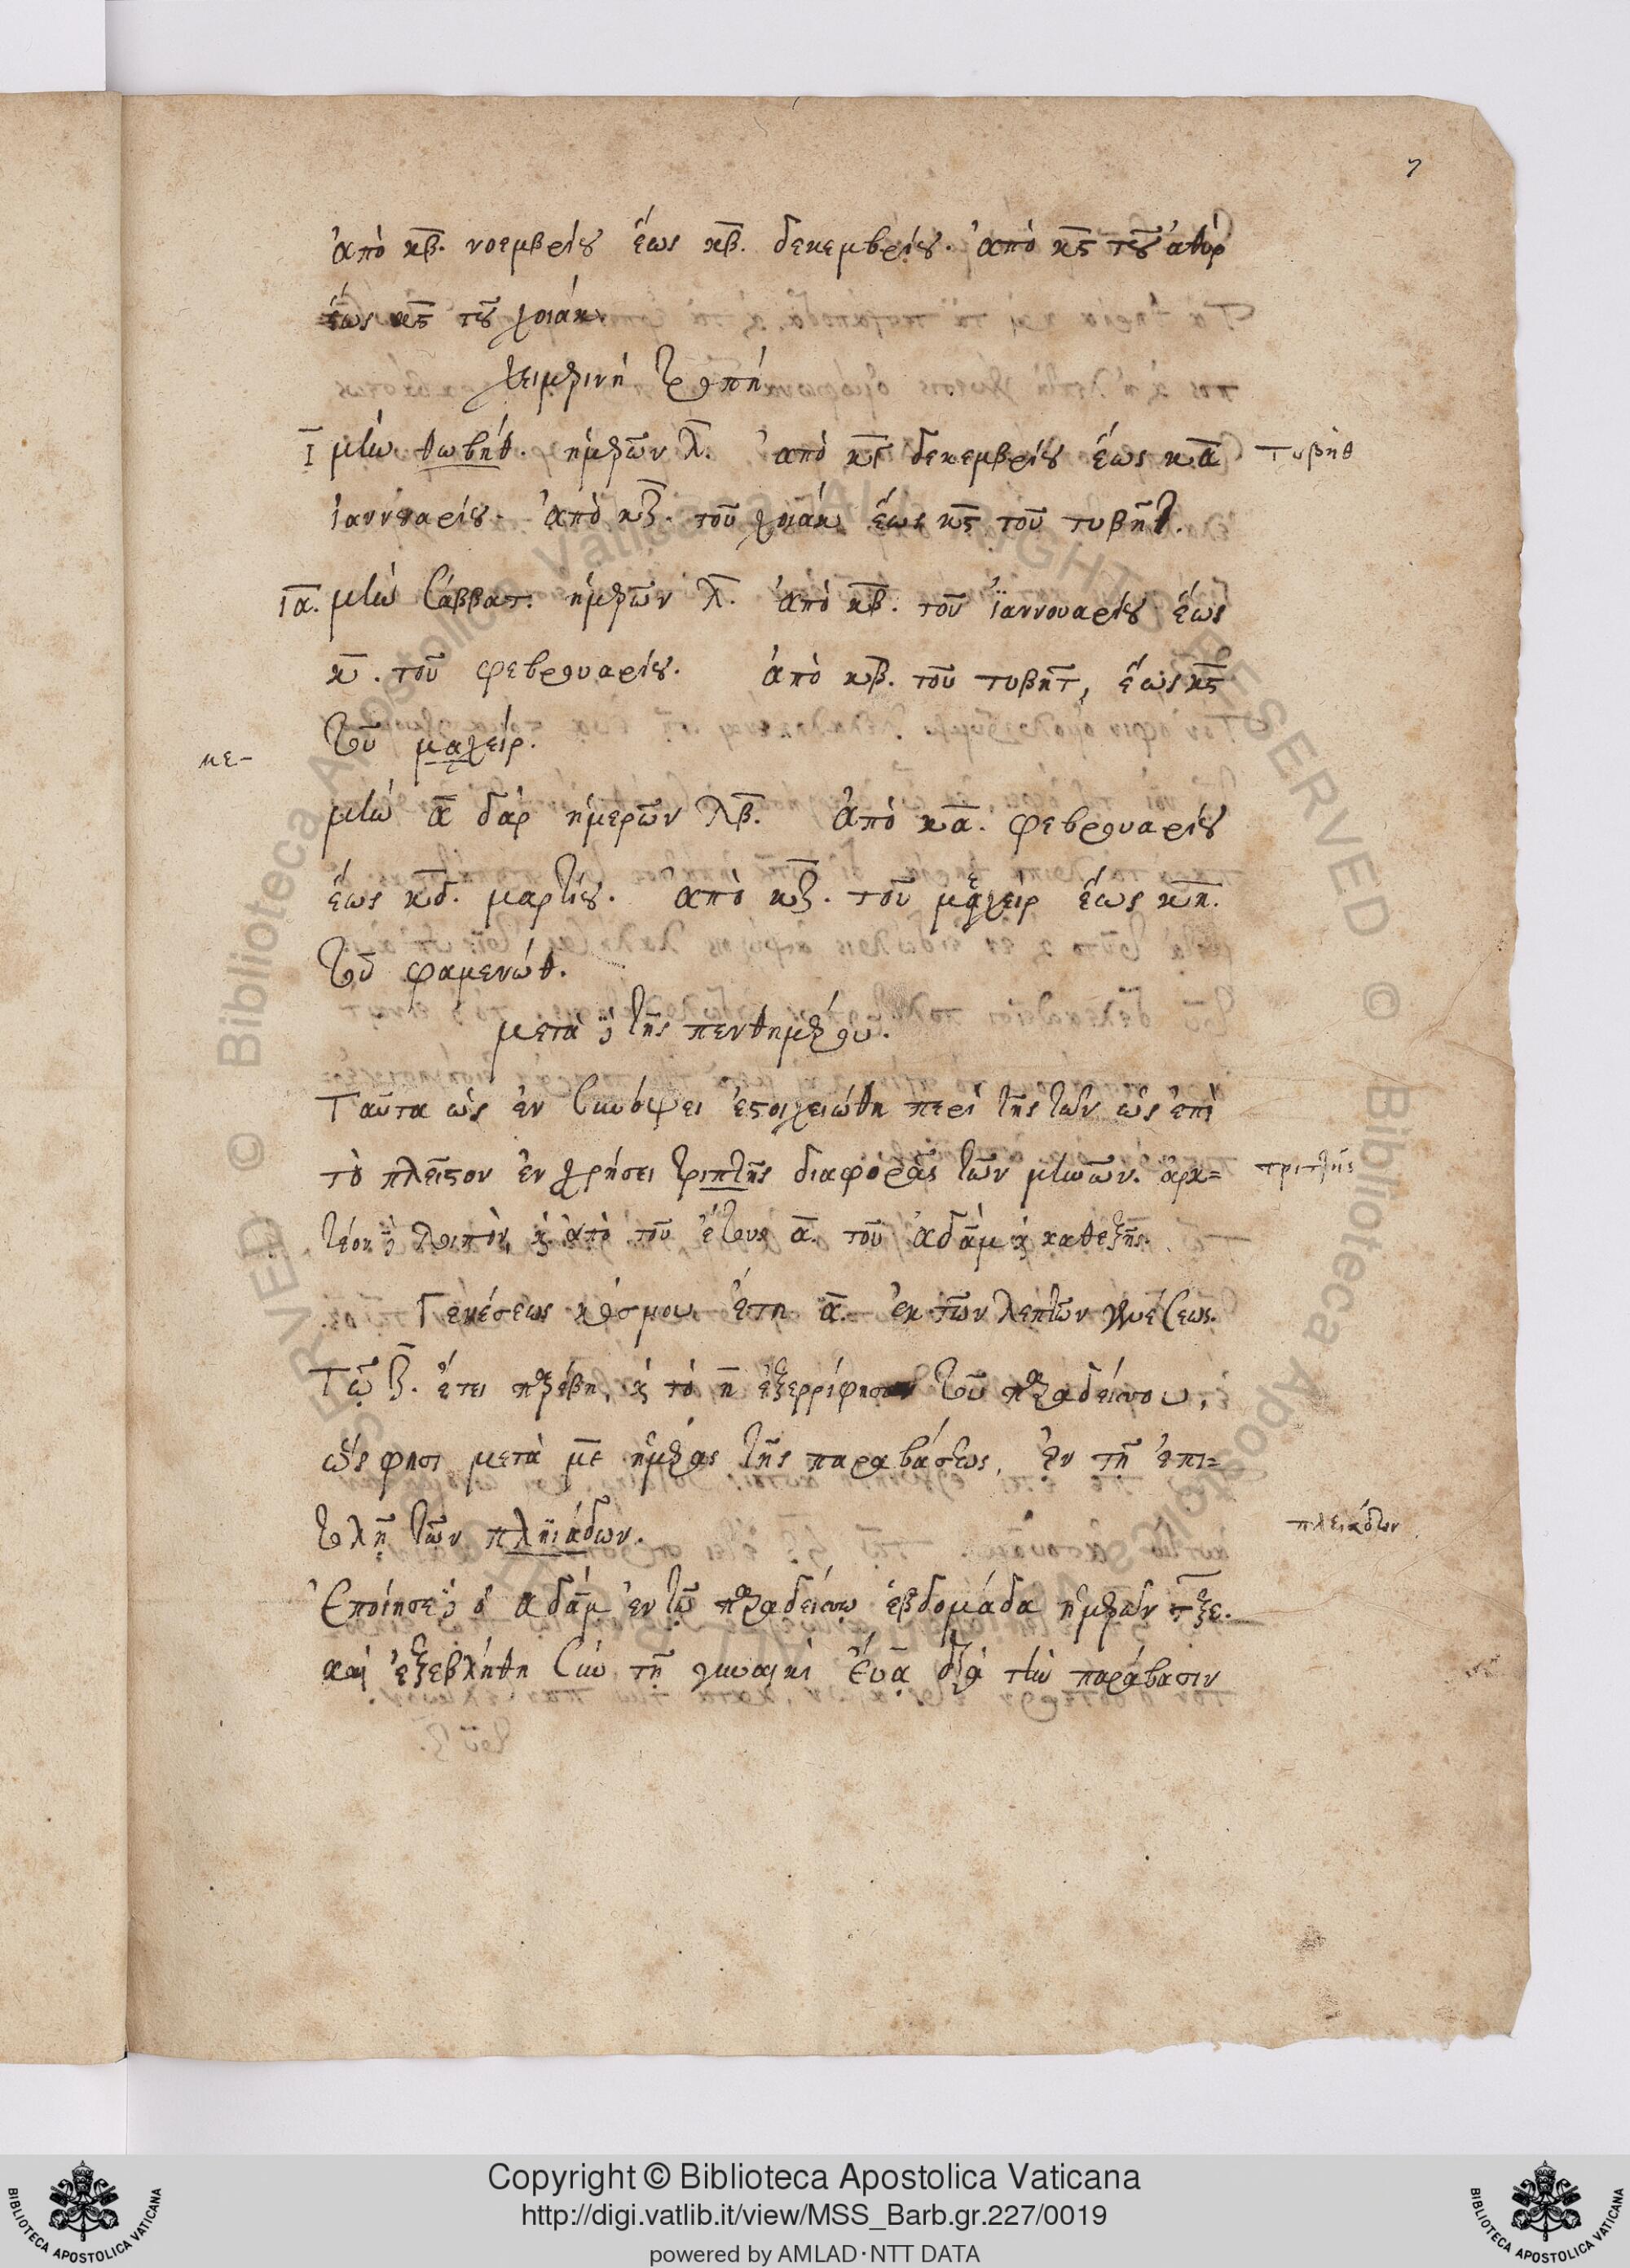 7
ἀπὸ κβ. νοεμβρίου ἕως κβ. δεκεμβρίου. ἀπὸ κϛ τοῦ ἀθὺρ
ἕως κϛ τοῦ χοιάκ
χειμερινὴ τροπή
ι μὴν θωβήθ. ἡμερῶν λ. ἀπὸ κγ δεκεμβρίου ἕως κα
τυβήθ
ἰαννουαρίου. ἀπὸ κζ. τοῦ χοιάκ ἕως κϛ τοῦ τυβῆτ.
ια. μὴν σάββατ. ἡμερῶν λ. ἀπὸ κβ. τοῦ ἰαννουαρίου ἕως
κ. τοῦ φεβρουαρίου. ἀπὸ κβ. τοῦ τυβῆτ, ἕως κϛ
τοῦ μαχείρ.
με-
μὴν ἀδάρ ἡμερῶν λβ. ἀπὸ κα. φεβρουαρίου
ἕως κδ. μαρτίου. ἀπὸ κζ. τοῦ μεχείρ ἕως κη.
τοῦ φαμενώθ.
μετὰ δὲ τῆς πενθημέρου.
Ταῦτα ὡς ἐν συνόψει ἐστοιχειώθη περὶ τῆς τῶν ὡς ἐπὶ
τὸ πλεῖστον ἐν χρήσει τριπτῆς διαφορᾶς τῶν μηνῶν. ἀρκ=
τριττῆς
τέον δὲ λοιπὸν, καὶ ἀπὸ τοῦ ἔτους α. τοῦ ἀδάμ καὶ καθεξῆς.
Γενέσεως κόσμου ἔτη α. ἐκ τῶν λεπτῶν γενέσεως.
Τῷ ζ. ἔτει παρέβη, καὶ τὸ η ἐξερρίφησαν τοῦ παραδείσου,
ὥς φησι μετὰ με ἡμέρας τῆς παραβάσεως, ἐν τῇ ἐπι=
τολῇ τῶν πληϊάδων.
πλειάδων
Ἐποίησε δὲ ὁ ἀδάμ ἐν τῷ παραδείσῳ ἑβδομάδα ἡμερῶν τξε.
καὶ ἐξεβλήθη σὺν τῇ γυναικὶ Εὔᾳ διὰ τὴν παράβασιν
Copyright © Biblioteca Apostolica Vaticana
http://digi.vatlib.it/view/MSS_Barb.gr.227/0019
powered by AMLAD·NTT DATA